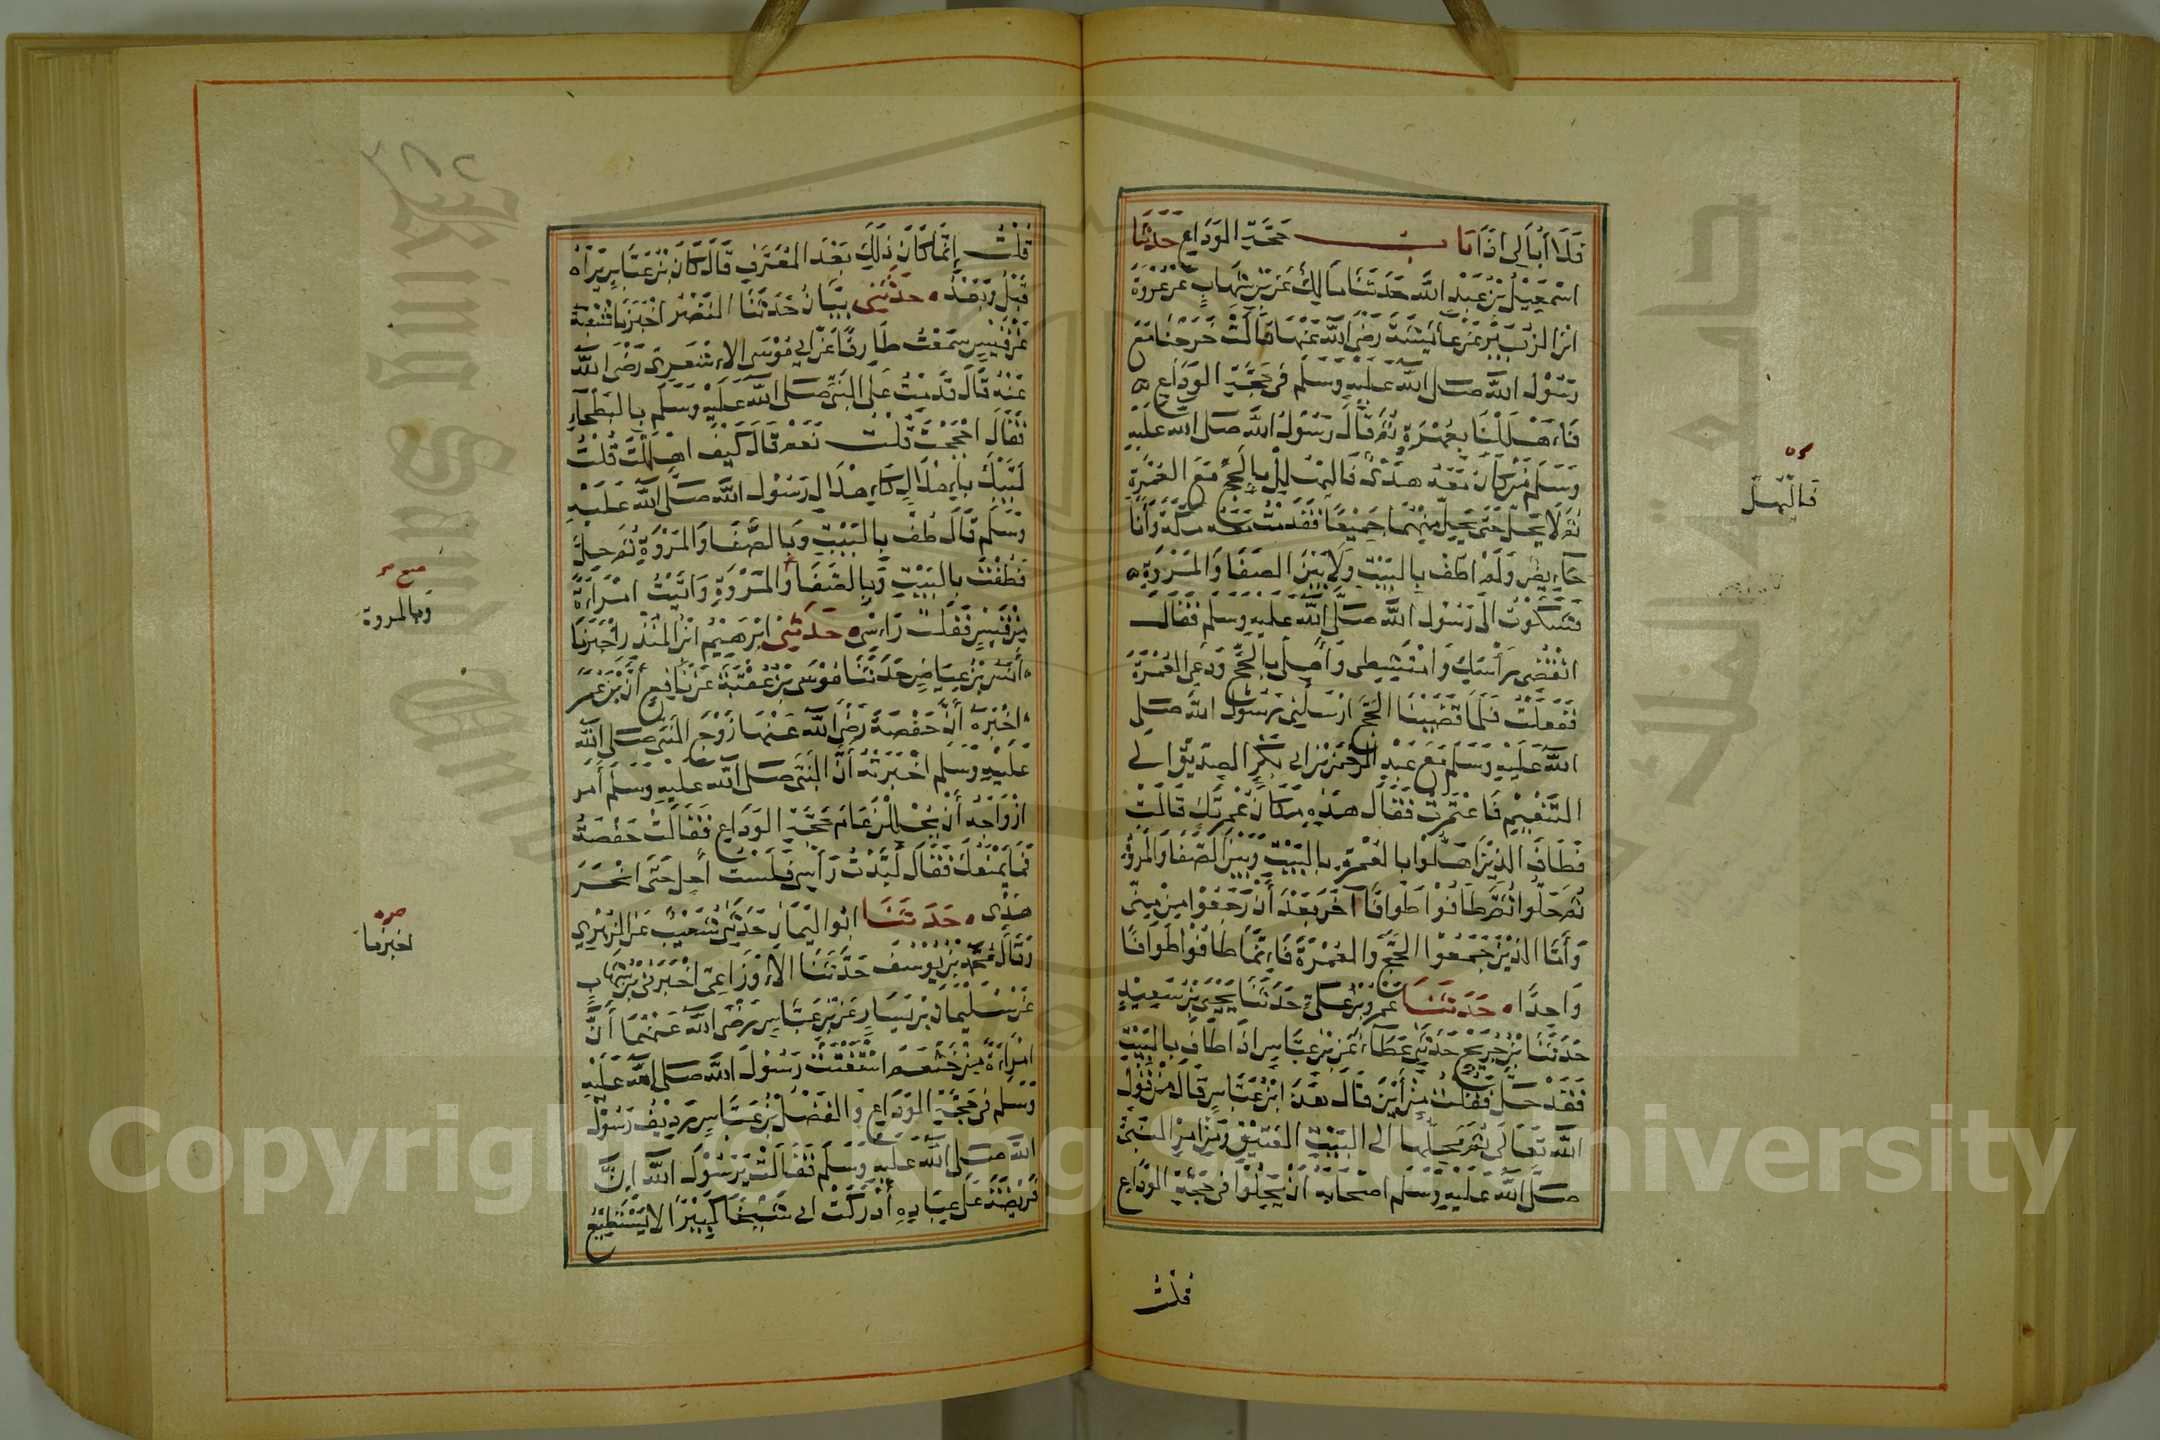 فَلَا أُبَالِي اِذًا اَنَا باب حَجَّةِ الوَدَاعِ حَدَثَنَا
اسْمٰعِيْلُ بْنُ عَبْدِ اللّٰه حَدَثَنَا مَالِكٌ عَنِ بْنِ شِهَابٍ عَنْ عُرْوَةَ
ابْنِ الزُبَيْرِ عَنْ عَائِشَةَ رَضِيَ اللّٰه عَنْهَا قَالَتْ خَرَجْنَا مَعَ
رَسُوْلِ اللّٰه صَلى اللّٰه عَلَيْهِ وَسَلَم في حَجَّةِ الوَدَاعِ
فَاَهْلَلْنَا بِعُمْرَةٍ ثُمَّ قَالَ رَسُوْلُ اللّٰه صَلى اللّٰه عَلَيْهِ
وَسَلَم مَنْ كَانَ مَعَهُ هَدْىٌ فَالْيُهْلِلْ بِالحَجِّ مَعَ العُمْرَةِ
ثُمَّ لَا يَحِلُّ حَتَى يَحِلَّ مِنْهُمَا جَمِيْعًا فَقَدِمْتُ مَعَهُ مَكَّةَ وَأَنَا
حَاىِٔضٌ وَلَمْ اَطُفْ بِالبَيْتِ وَلَا بَيْنَ الصَفَا وَالمَرْوَةِ
فَشَكَوْتُ الَى رَسُوْلِ اللّٰه صَلَّى اللّٰه عَلَيْهِ وَسَلَم فَقَالَ
انْقُضِى رَأْسَكِ وَامْتَشِطِى وَأَهِلِّى بِالحَجِّ وَدَعِى العُمْرَةَ
فَفَعَلْتُ فَلَمَا قَضَيْنَا الحَجَّ ارْسَلَنِى رَسُوْلُ اللّٰه صَلى
اللّٰه عَلَيْهِ وَسَلَمَ مَعَ عَبْدِ الرَحْمٰنِ بْنِ ابى بَكْرٍ الصِدِيْقِ الى
التَنْعِيْمِ فَاعْتَمَرْتُ فَقَالَ هٰذِهِ مَكَانُ عُمْرَتِكِ قَالَتْ
فَطَافَ الذِيْنَ اهَلُّوْا بِالعُمْرَةِ بِالبَيْتِ وَبَيْنَ الصَّفَا وَالمَرْوَةِ
ثُمَ حَلُّوا ثُمَّ طَافُوْا طَوَافًا آخَرَ بَعْدَ أَنْ رَجَعُوْا مِنْ مِنًى
وَأَمَّا الذِيْنَ جَمَعُوْا الحَجَّ وَالعُمْرَةَ فَاِنَّمَا طَافُوْا طَوَافًا
وَاحِدًا حَدَثَنَا عَمْرُو بْنُ عَلِىٍّ حَدَثَنَا يَحْيَى بْنُ سَعِيْدٍ
حَدَثَنَا بْنُ جُرَيْجٍ حَدَثَنِى عَطَآءٌ عَنِ بْنِ عَبَّاسٍ اِذَا طَافَ بِالبَيْتِ
فَقَدْ حَلَّ فَقُلْتُ مِنْ أَيْنَ قَالَ هٰذَا ابْنُ عَبَّاسٍ قَالَ مِنْ قَوْلِ
اللّٰه تَعَالَى ثُمَّ مَحِلُّهَا الى البَيْتِ العَتِيْقِ وَمِنْ اَمْرِ النَبِيِّ
صَلَّى اللّٰه عَلَيْهِ وَسَلَم اصْحَابَهُ أَنْ يَحِلُّوْا فى حَجَّةِ الوَدَاعِ
قُلْتُ
فَالْيُهِلَّ
قُلْتُ اِنَّمَا كَانَ ذٰلِكَ بَعْدَ المُعَرَّفِ قَالَ كَانَ بْنُ عَبَّاسٍ يَرَاهُ
قَبْلُ وَبَعْدُ حَدَثَنِى بَيَانٌ حَدَثَنَا النَضْرُ اخْبَرَنَا شُعْبَةُ
عَنْ قَيْسٍ سَمِعْتُ طَارِقًا عَنْ ابى مُوْسَى الاَشْعَرِىّ رَضِيَ اللّٰه
عَنْهُ قَالَ قَدِمْتُ عَلَى النَبِيِّ صَلى اللّٰه عَلَيْهِ وَسَلَم بِالبَطْحَآءِ
فَقَالَ احَجَجْتَ قُلْتُ نَعَمْ قَالَ كَيْفَ اهْلَلْتَ قُلْتُ
لَبَّيْكَ بِاِهْلَالٍ كَاِهْلَالِ رَسُوْلِ اللّٰه صَلَّى اللّٰه عَلَيْهِ
وَسَلَم قَالَ طُفْ بِالبَيْتِ وَبِالصَّفَا وَالمَرْوَةِ ثُمَ حِلَّ
فَطُفْتُ بِالبَيْتِ وَبِالصَّفَا وَالمَرْوَةِ وَاتَيْتُ امْرَاَةً
مِنْ قَيْسٍ فَفَلَتْ رَاْسِى حَدَثَنِى ابْرَهِيْمُ ابْنُ المُنْذِرِ اخْبَرَنَا
أَنَسُ بْنُ عِيَاضٍ حَدَثَنَا مُوْسَى بْنُ عُقْبَةَ عَنْ نَافِعٍ أَنَّ بْنَ عُمَرَ
اخْبَرَهُ أَنَّ حَفْصَةَ رَضِيَ اللّٰه عَنْهَا زَوْجَ النَبِيِّ صَلى اللّٰه
عَلَيْهِ وَسَلَم اخْبَرَتْهُ أَنَّ النَبِيَّ صَلى اللّٰه عَلَيْهِ وَسَلَم أَمَرَ
ازْوَاجَهُ أَنْ يَحْلِلْنَ عَامَ حَجَّةِ الوَدَاعِ فَقَالَتْ حَفْصَةُ
فَمَا يَمْنَعُكَ فَقَالَ لَبَّدْتُ رَأْسِى فَلَسْتُ أَحِلُّ حَتَّى انْحَرَ
هَدْيِى حَدَثَنَا ابُو اليَمَانِ حَدَثَنِى شُعَيْبٌ عَنِ الزُهْرِيِ
وَقَالَ مُحَمَّدُ بْنُ يُوْسُفَ حَدَّثَنَا الاَوْزَاعِىّ اخْبَرَنِى بْنُ شِهَابٍ
عَنْ سُلَيْمَانَ بْنِ يَسَارٍ عَنِ بْنِ عَبَّاسٍ رَضَى اللّٰه عَنْهُمَا أَنَّ
امْرَاَةً مِنْ خَثْعَمَ اسْتَفْتَتْ رَسُوْلَ اللّٰه صَلى اللّٰه عَلَيْهِ
وَسَلم فى حَجَّةِ الوَدَاعِ وَالفَضْلُ بْنُ عَبَّاسٍ رَدِيْفُ رَسُوْلِ
اللّٰه صَلى اللّٰه عَلَيْهِ وَسَلَم فَقَالَتْ يَرَسُوْلَ اللّٰه اِنَّ
فَرِيْضَةَ عَلَى عِبَادِهِ أَدْرَكَتْ ابى شَيْخًا كَبِيْرًا لا يَسْتَطِيْعُ
وبالمروة
اخبرنا
Copyright © King Saud University